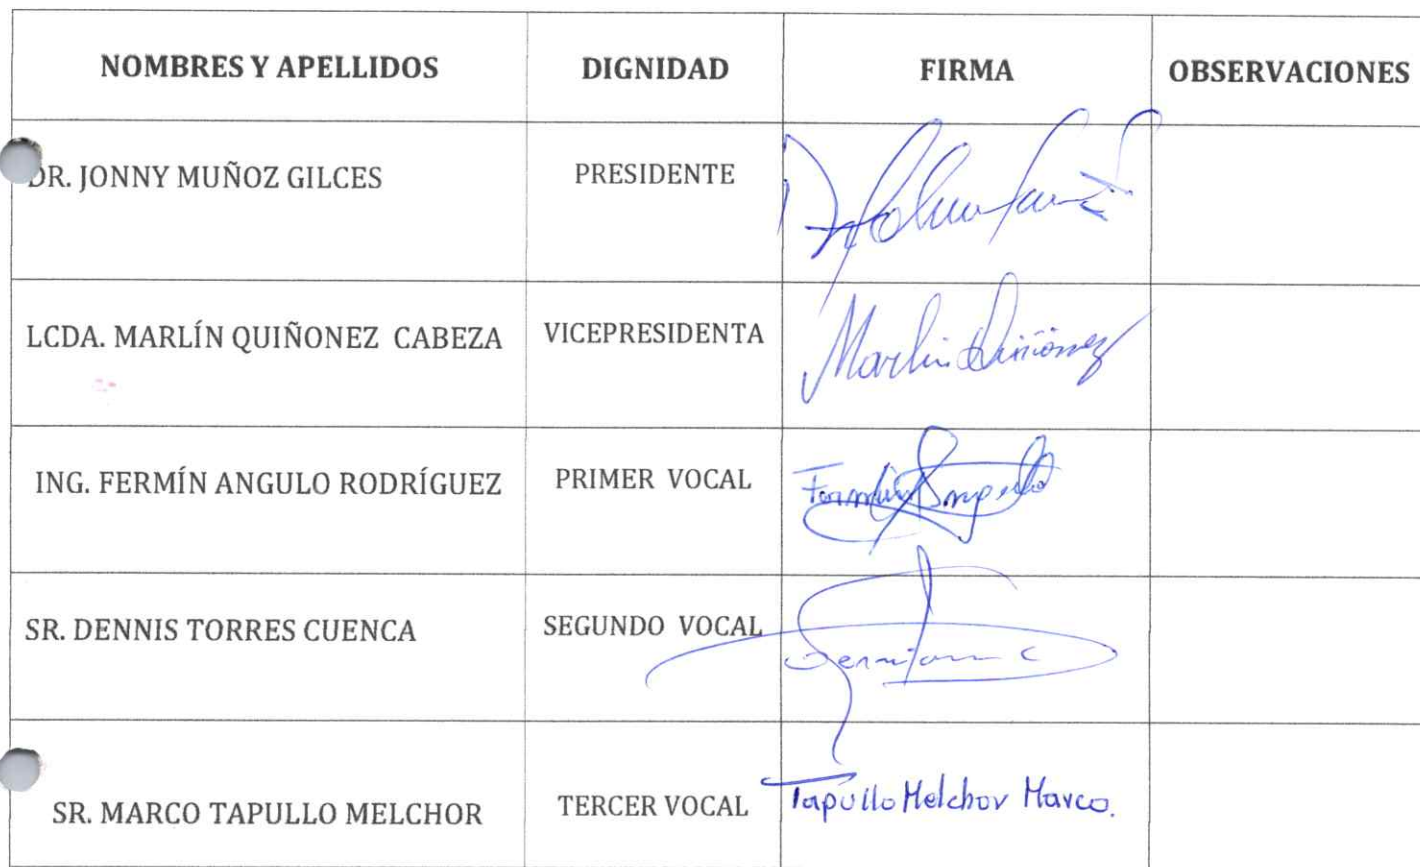 NOMBRES Y APELLIDOS DIGNIDAD FIRMA OBSERVACIONES
DR. JONNY MUÑOZ GILCES PRESIDENTE
LCDA. MARLÍN QUIÑONEZ CABEZA VICEPRESIDENTA Marlin Quiñonez
ING. FERMÍN ANGULO RODRÍGUEZ PRIMER VOCAL Fermin Angulo
SR. DENNIS TORRES CUENCA SEGUNDO VOCAL
SR. MARCO TAPULLO MELCHOR TERCER VOCAL Tapullo Melchor Marco.